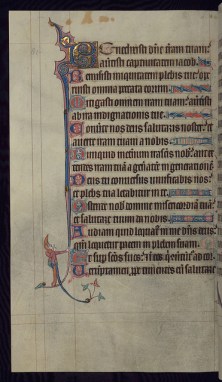 Benedixisti dñe tram tuam:
auertisti captiuitatem iacob.
Remisisti iniquitatem plebis tue: ope
ruisti omnia peccata eorum.
Mitigasti omnem iram tuam: auertisti
ab ira indignationis tue.
Conuerte nos deus salutaris noster: et
auerte iram tuam a nobis.
Numquid in eternum irasceris nob: aut ex
tendes iram tuam a generatione in generationem
Deus tu conuersus uiuificabis nos:
et plebs tua letabitur in te.
Ostende nob domine misericordiam tuā:
et salutare tuum da nobis.
Audiam quid loquatur in me dñs deus:
qm̄ loquetur pacem in plebem suam.
Et sup scōs suos: et in eos
Uerūptamen prope timentes eū salutare